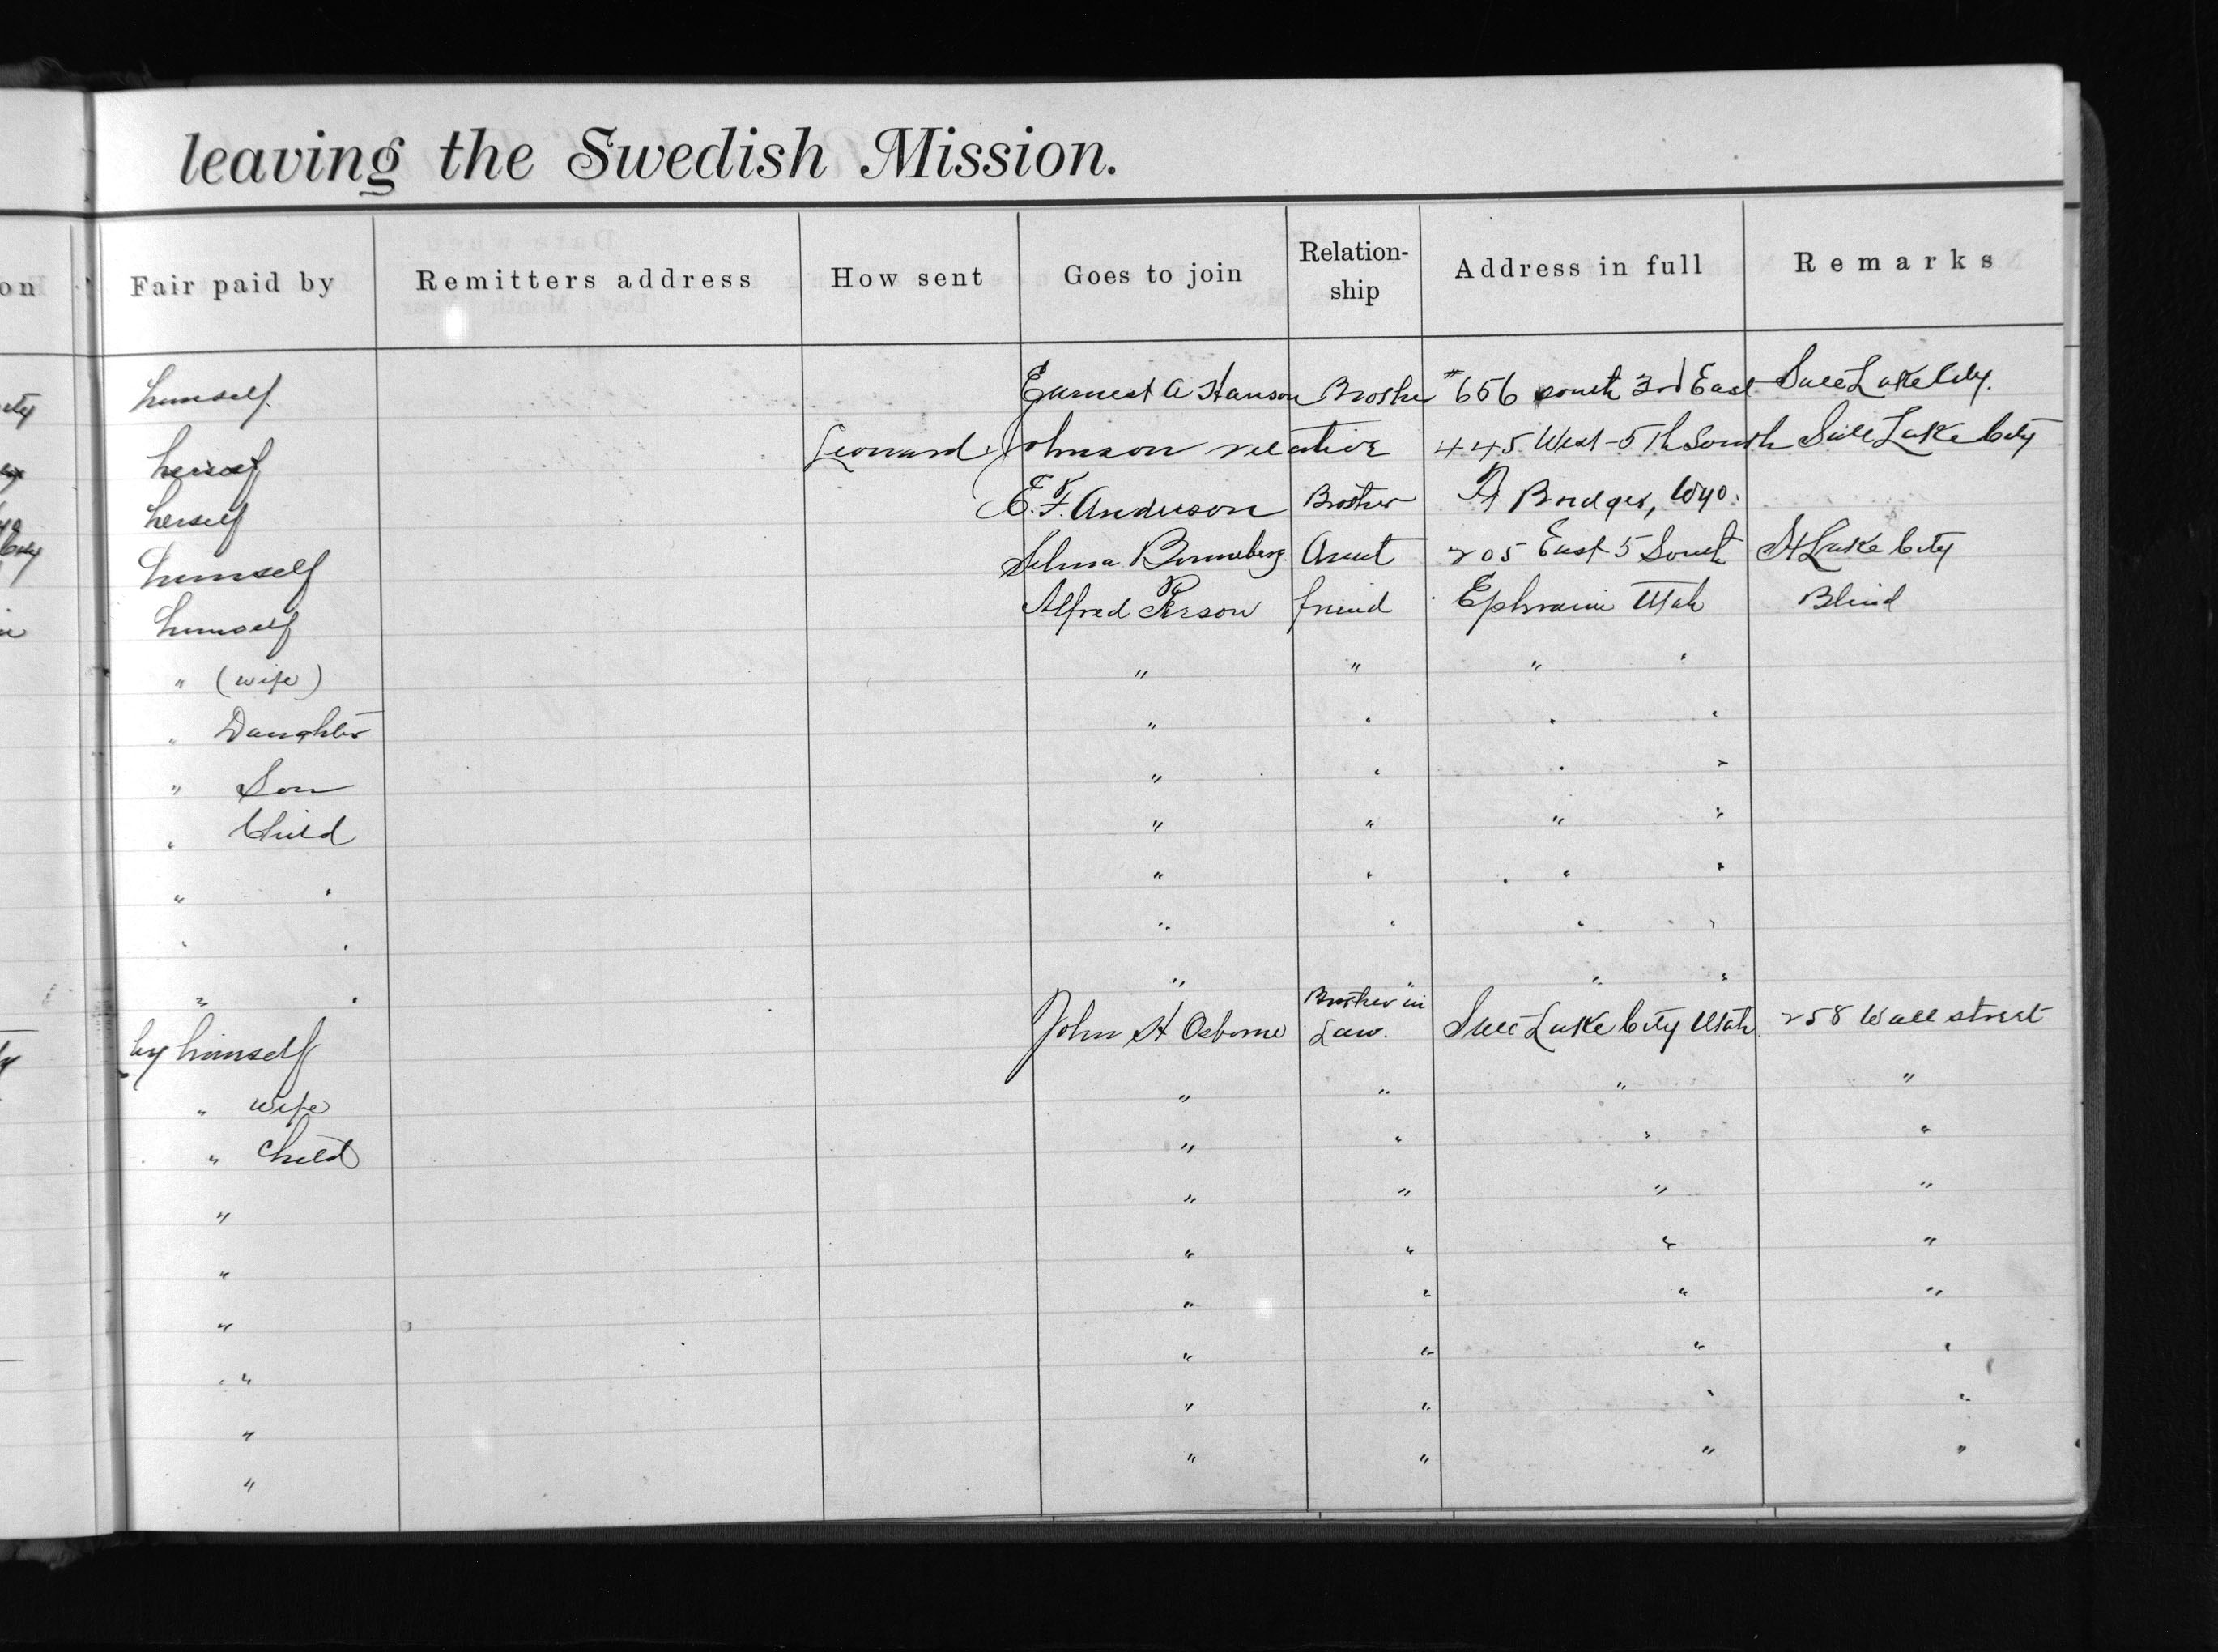 leaving the Swedish Mission.
on Fair paid by Remitters address How sent Goes to join Relation-ship Address in full Remarks
himself Earnest A Hanson Brother #656 south 3rd East Salt Lake City.
herself Leonard Johnson relative 445 West 5th South Salt Lake City
herself E. F. Anderson Brother Ft Bridger, Wyo.
himself Selma Aunt 205 East 5 South St Lake City
himself Alfred Person friend Ephraim Utah Blind
" (wife) " " " "
" Daughter " " " "
" Son " " " "
" Child " " " "
" " " " " "
" " " " " "
" " " " " "
by himself John H Osborne Brother in Law. Salt Lake City Utah 258 Wall street
" wife " " " "
" Child " " " "
" " " " "
" " " " "
" " " " "
" " " " "
" " " " "
" " " " "